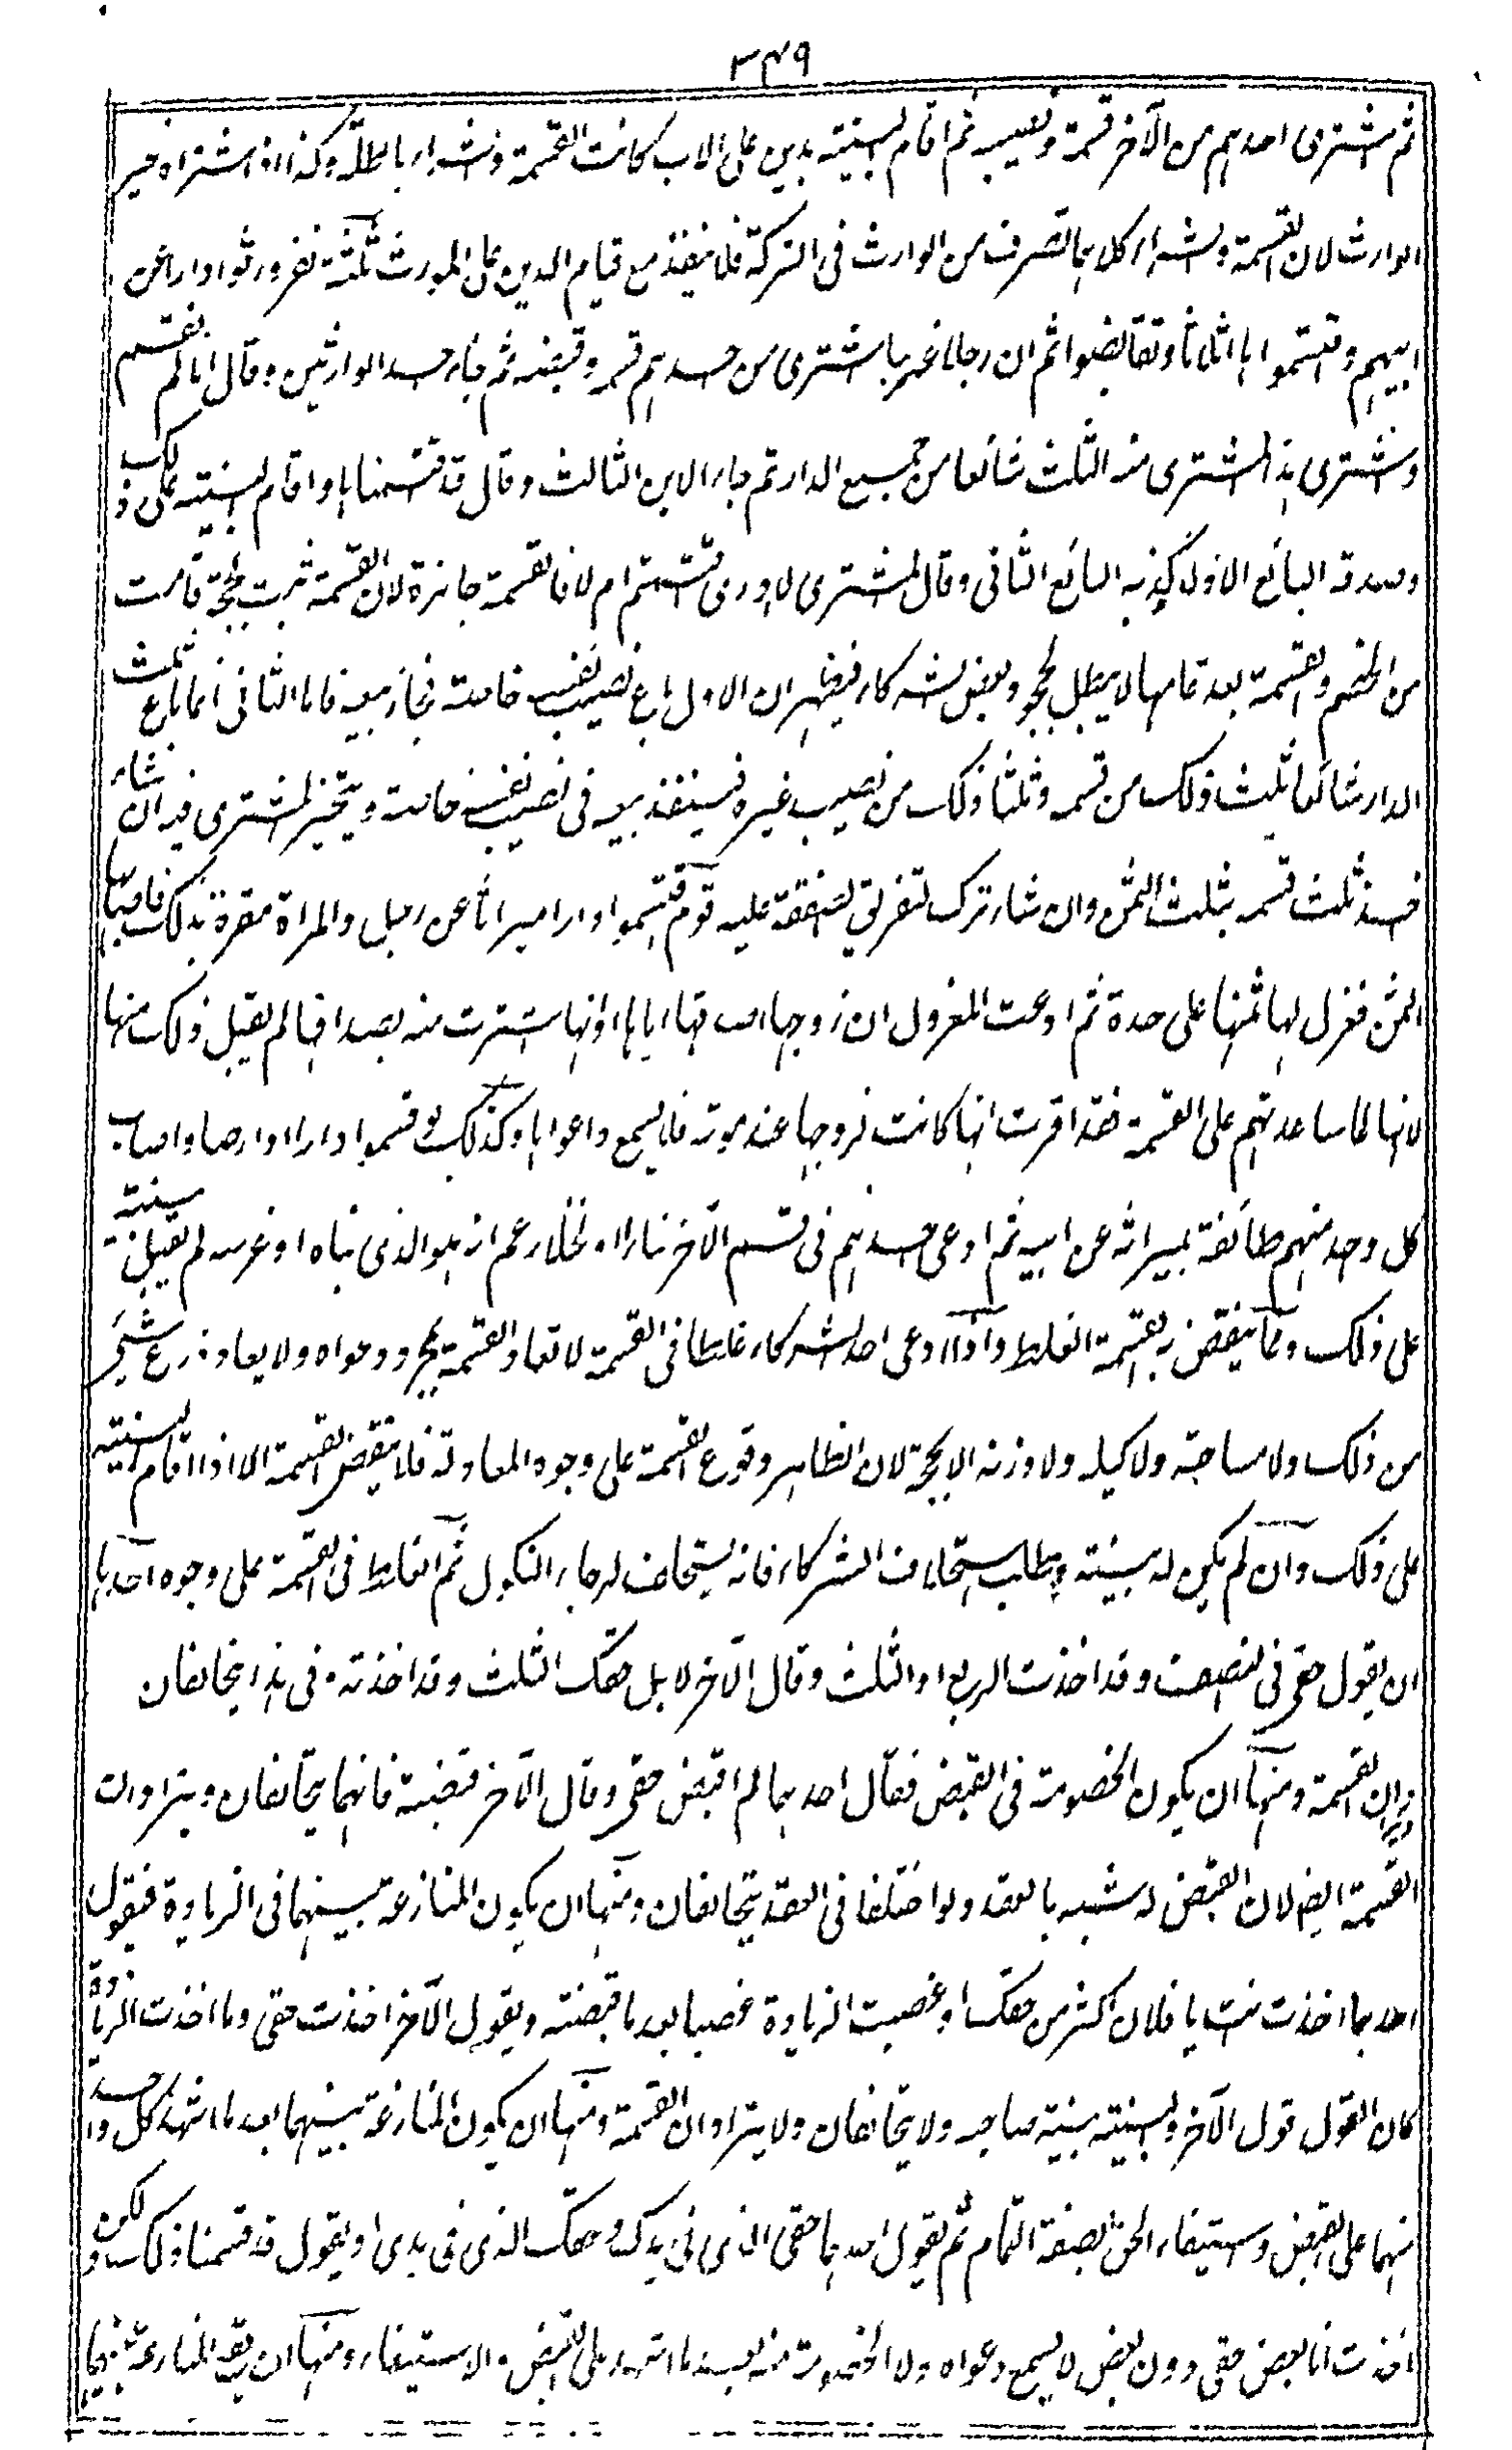 ٣٤٩
ثم اشترى احدهم من الآخر قسمه ونصيبه ثم اقام البينة بدين على الاب كانت القسمة والشراء باطلة وكذا اذا اشتراه غير
الوارث لان القسمة والشراء كلاهما تصرف من الوارث فى التركة فلا ينفذ مع قيام الدين على المورث ثلثة نفر ورثوا دارا عن
ابيهم واقتسموها اثلاثا وتقابضوا ثم ان رجلا غريبا اشترى من احدهم قسمه وقبضه ثم جاء احد الوارثين وقال انا لم نقتسم
واشترى هذا المشترى منه الثلث شائعا من جميع الدار ثم جاء الابن الثالث وقال قد اقتسمناها واقام البينة على ذلك
وصدقه البائع الاول وكذبه البائع الثانى وقال المشترى لا ادرى اقتسمتم ام لا فالقسمة جائزة لان القسمة ثبتت بحجة قامت
من الخصم والقسمة بعد تمامها لا يبطل بجحود بعض الشركاء فيظهر ان الاول باع نصيب نفسه خاصة فجاز بيعه فاما الثانى انما باع ثلث
الدار شائعا ثلث ذلك من قسمه وثلثا ذلك من نصيب غيره فينفذ بيعه فى نصيب نفسه خاصة ويتخير المشترى فيه ان شاء
اخذ ثلث قسمه بثلث الثمن وان شاء ترك لتفرق الصفقة عليه قوم اقتسموا دارا ميراثا عن رجل والمراة مقرة بذلك فاصابها
الثمن فعزل لها ثمنها على حدة ثم ادعت المعزول ان زوجها اصدقها اياها او انها اشترت منه بصداقها لم يقبل ذلك منها
لانها لما ساعدتهم على القسمة فقد اقرت انها كانت لزوجها عند موته فلا يسمع دعواها وكذلك لو قسموا دارا او ارضا واصاب
كل واحد منهم طائفة بميراثه عن ابيه ثم ادعى احدهم فى قسم الآخر بناء او نخلا زعم انه هو الذى بناه او غرسه لم يقبل بينته
على ذلك ومما ينقض به القسمة الغلط واذا ادعى احد الشركاء غلطا فى القسمة لا تعاد القسمة بمجرد دعواه ولا يعاد ذرع شئ
من ذلك ولا مساحته ولا كيله ولا وزنه الا بحجة لان الظاهر وقوع القسمة على وجوه المعادلة فلا ينقض القسمة الا اذا اقام البينة
على ذلك وان لم يكن له بينة وطلب استحلاف الشركاء فانه يستحلف لرجاء النكول ثم الغلط فى القسمة على وجوه احدها
ان يقول حقى فى النصف وقد اخذت الربع او الثلث وقال الآخر لا بل حقك الثلث وقد اخذته وفى هذا يتحالفان
ويرادان القسمة ومنها ان يكون الخصومة فى القبض فقال احدهما لم اقبض حقى وقال الآخر قبضته فانهما يتحالفان ويترادان
القسمة ايضا لان القبض له شبه بالعقد ولو اختلفا فى العقد يتحالفان ومنها ان يكون المنازعة بينهما فى الزيادة فيقول
احدهما اخذت انت يا فلان اكثر من حقك او غصبت الزيادة غصبا بعد ما قبضته ويقول الآخر اخذت حقى وما اخذت الزيادة
كان القول قول الآخر والبينة بينة صاحبه ولا يتحالفان ولا يترادان القسمة ومنها ان يكون المنازعة بينهما بعد ما اشهد كل واحد
منهما على القبض واستيفاء الحق بصفة التمام ثم يقول احدهما حقى الذى فى يدك وحقك الذى فى يدى او يقول قد قسمنا ذلك ولكن
اخذت انا بعض حقى دون بعض لا يسمع دعواه ولا الخصومة منه بعد ما اشهد على القبض والاستيفاء ومنها ان يقع المنازعة بينهما